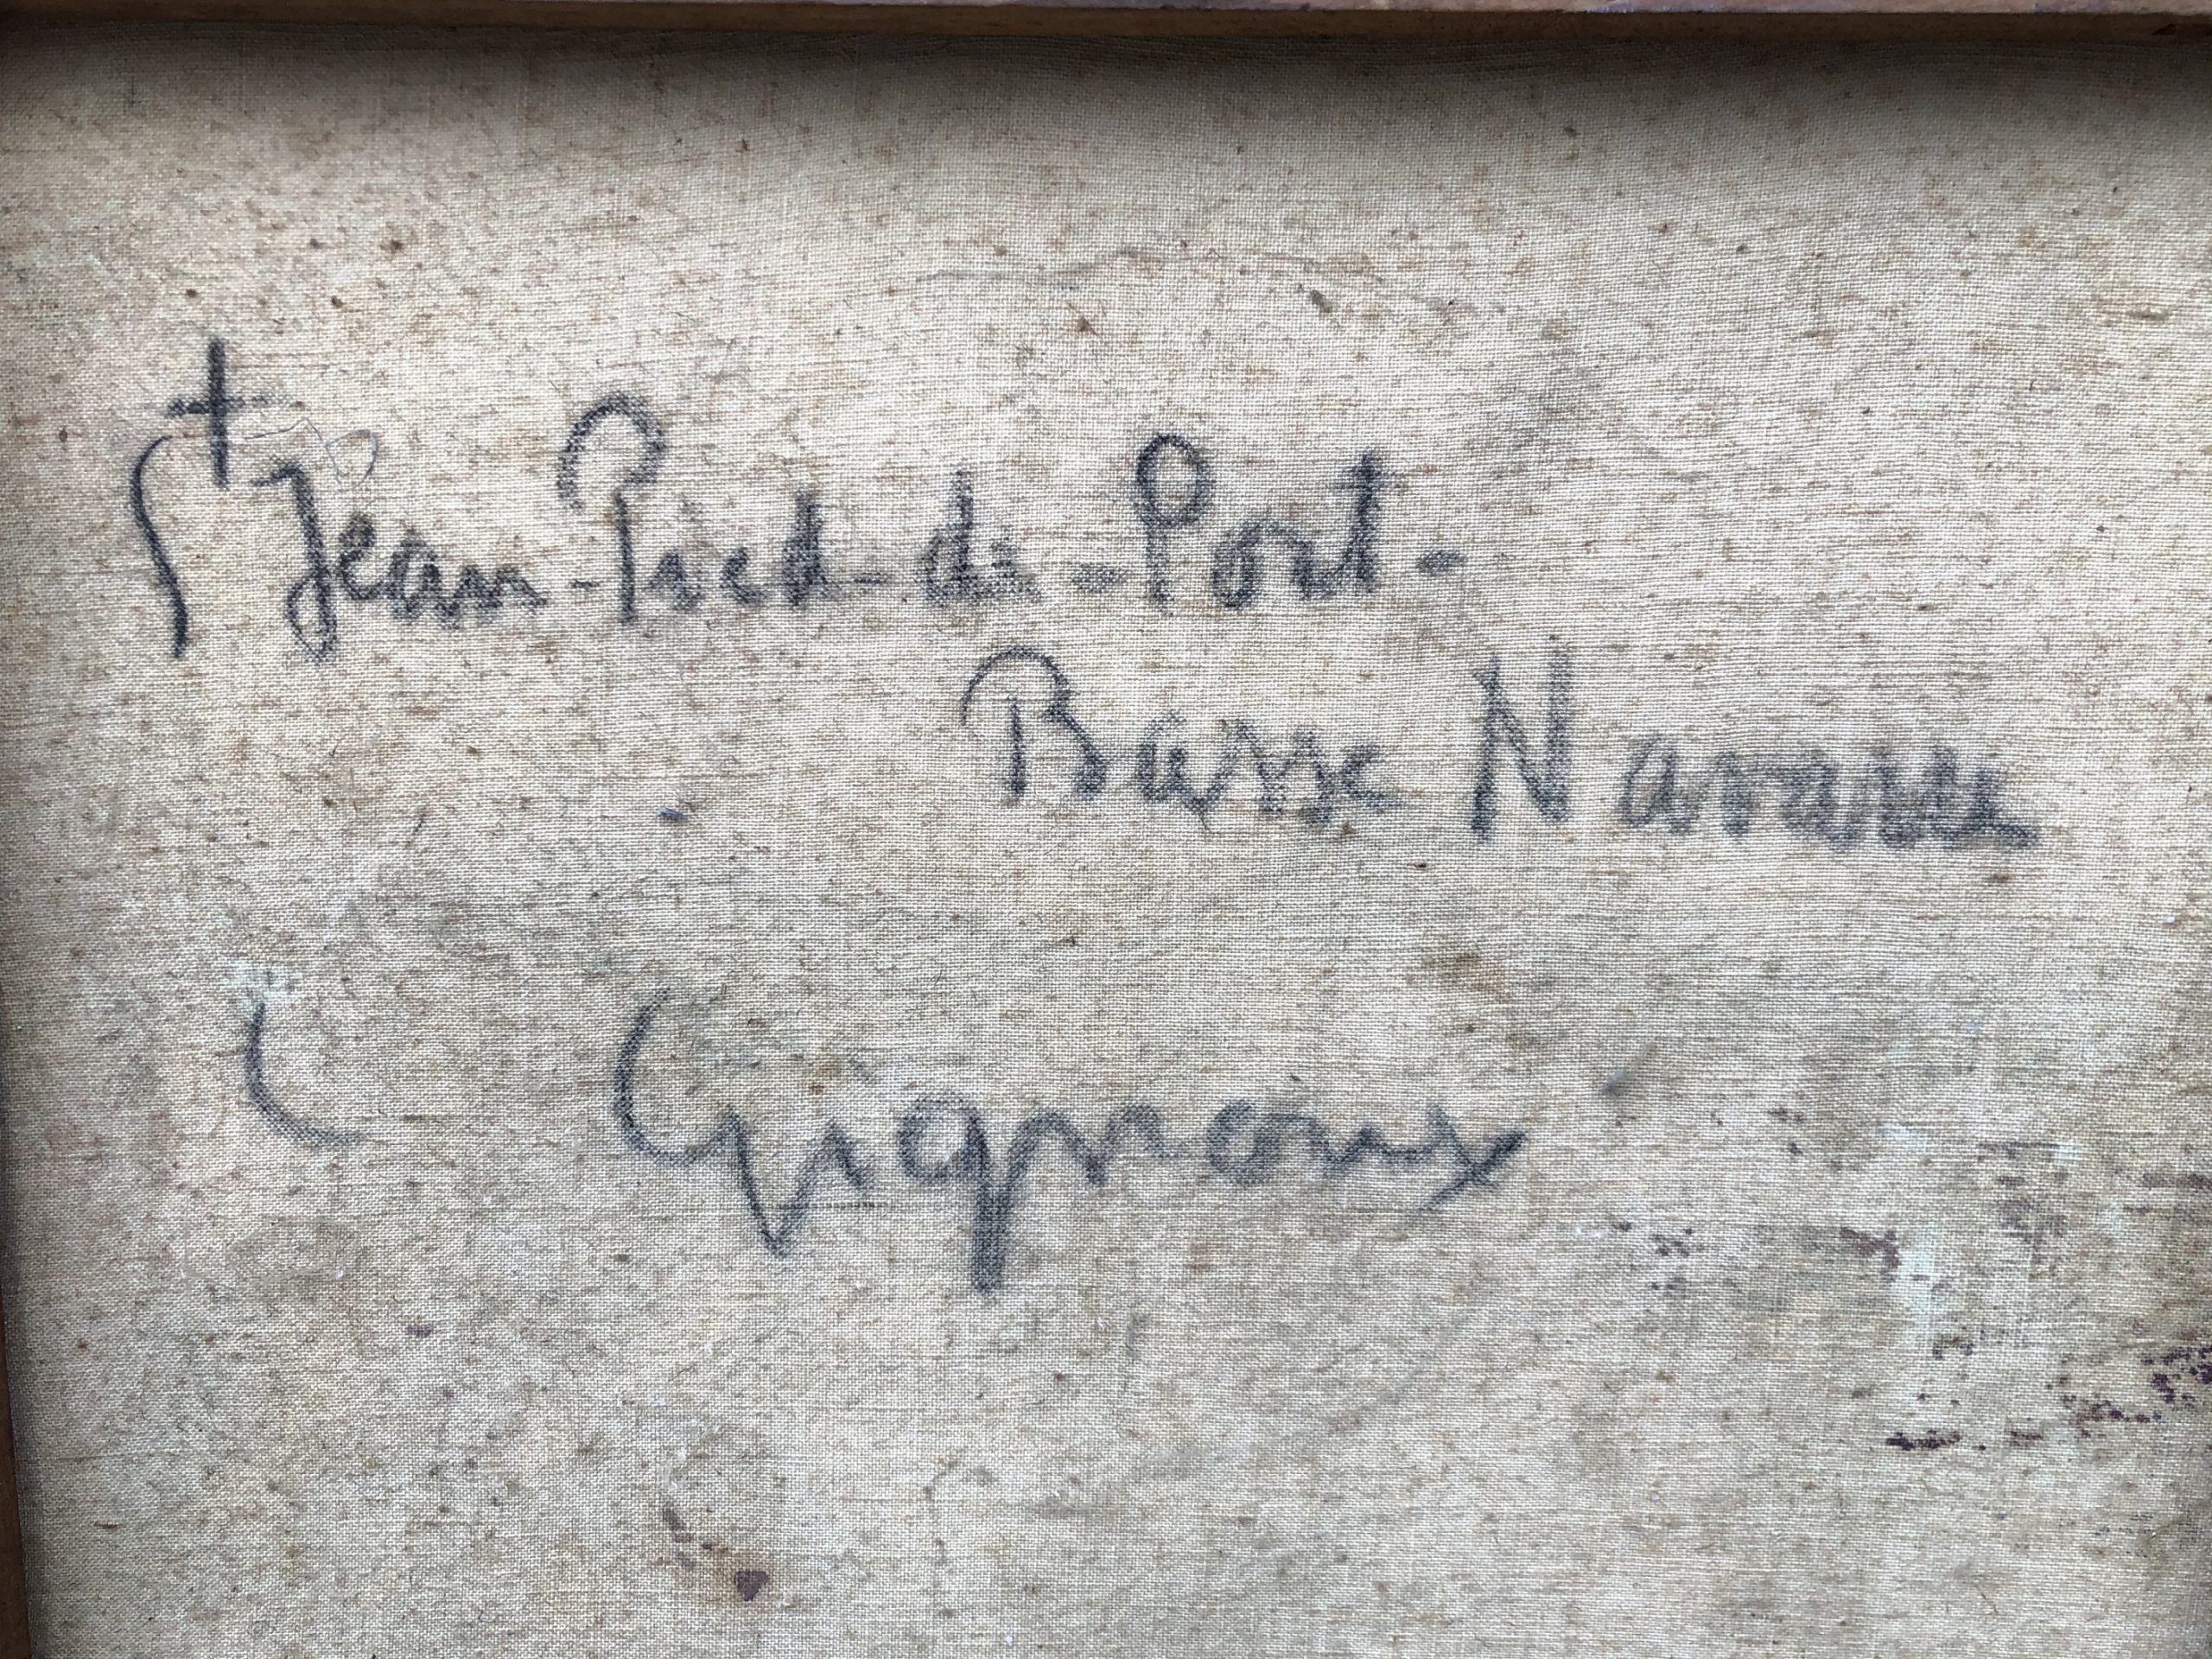 St Jean-Pied-de-Port-
Basse Navarre
L Gignoux